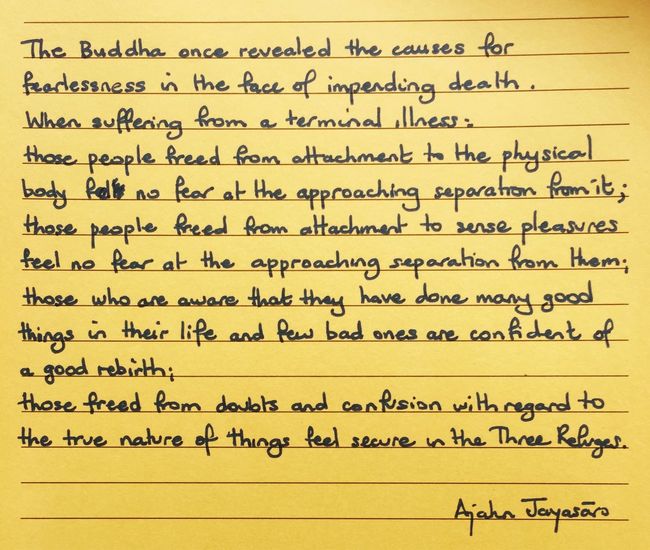 The Buddha once revealed the causes for
fearlessness in the face of impending death.
When suffering from a terminal illness:
those people freed from attachment to the physical
body no fear at the approaching separation from it;
those people freed from attachment to sense pleasures
feel no fear at the approaching separation from them;
those who are aware that they have done many good
things in their life and few bad ones are confident of
a good rebirth;
those freed from doubts and confusion with regard to
the true nature of things feel secure in the Three Refuges.
Ajahn Jayasāro